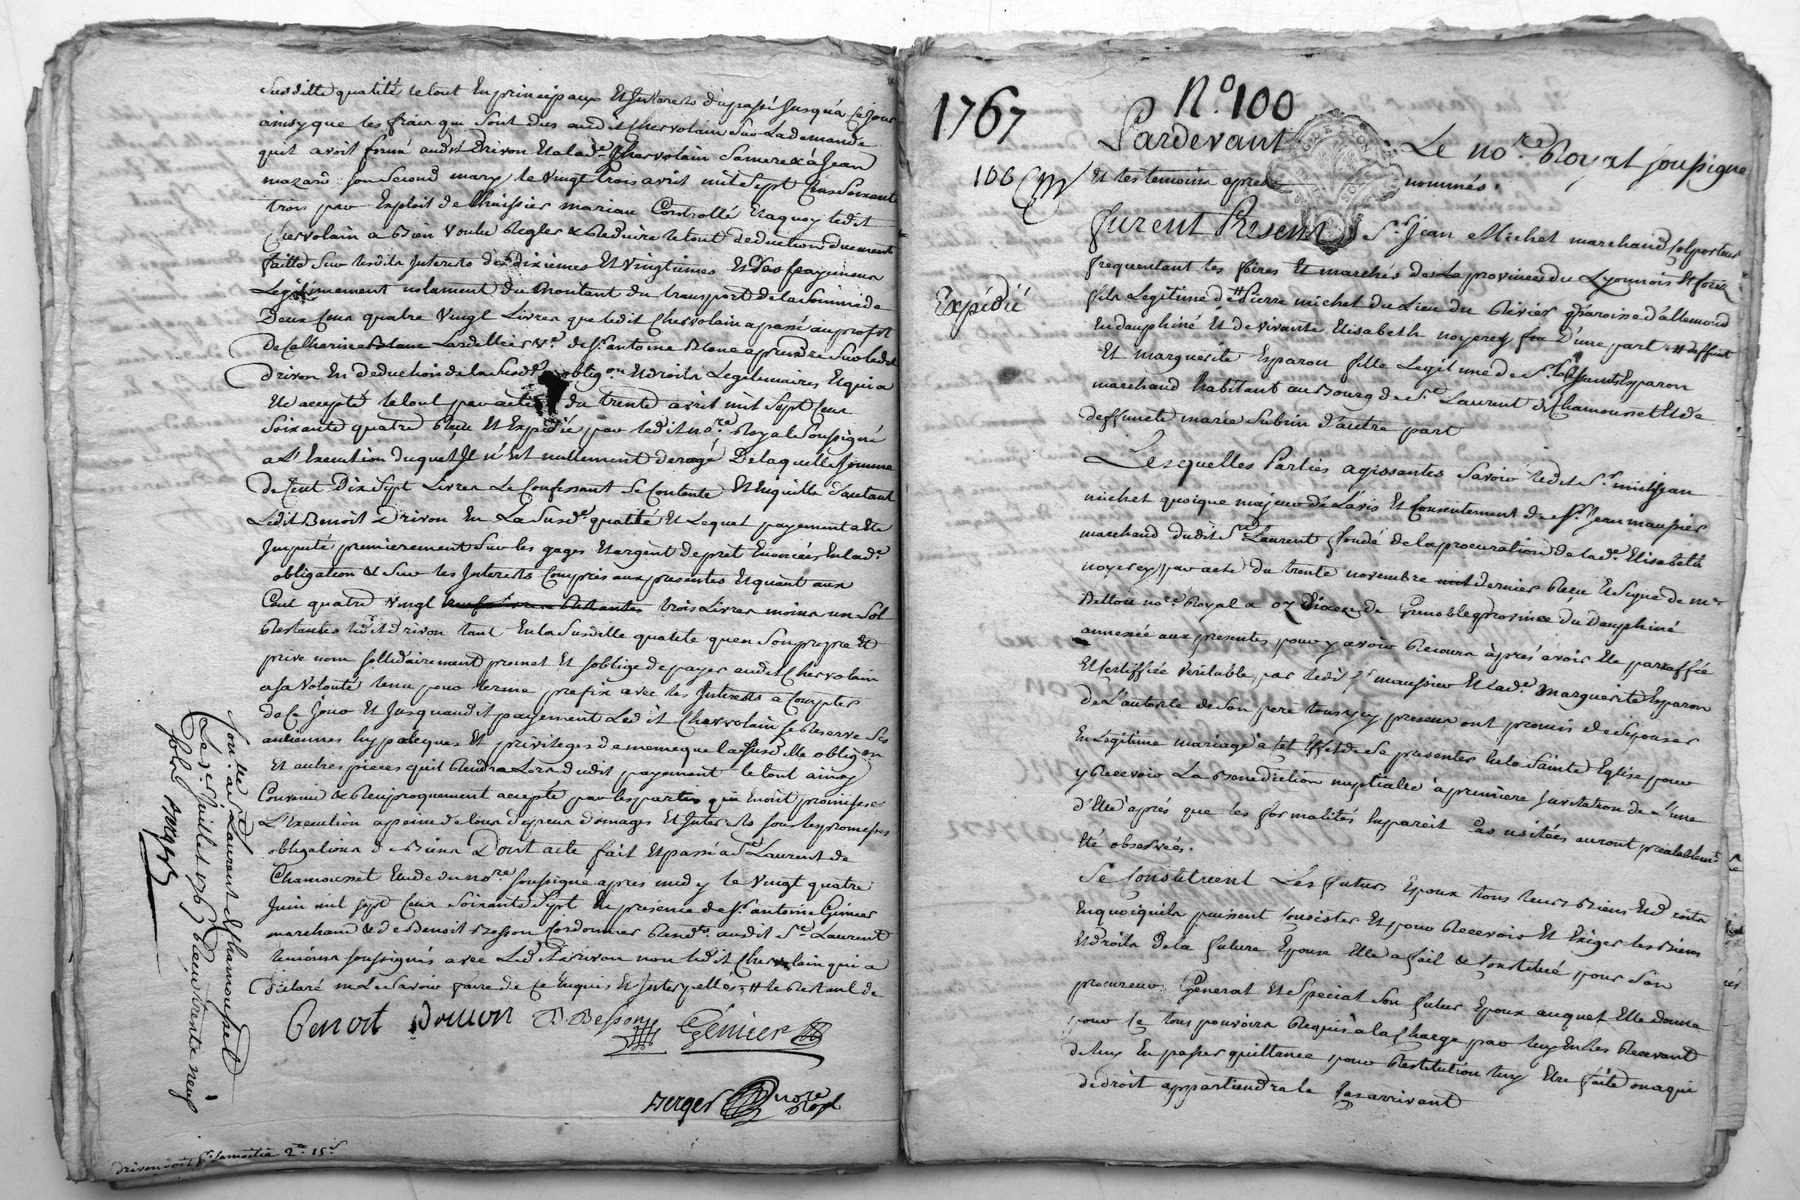 susditte qualité le tout en principaux et Interets du passé Jusqu'à ce Jour
ainsy que les frais qui sont dus audit Chervolain sur la demande
quil avoit formé audit Drivon et a lad.e Chervolain sa mere & à Jean
mazard son second mary le vingt trois avril mil sept cens soixante
trois par Exploit de l'huissier marian Controllé Laquoy ledit
Chervolain a bien voulu Regler & Reduire le tout deduction duement
faitte sur lesdits Interets des dixiemes et vingtiemes et des payemens
Legitimement notament du montant du transport de la somme de
Deux Cens quatre vingt Livres que ledit Chervolain a passé au profit
De Catherine Blanc v.e de S.r antoine Blanc a prendre sur led.
drivon En deduction de la susd.e oblig.on Et droits Legitimaires Et qui a
Eté accepté le tout par acte du trente avril mil sept cens
soixante quatre Reçu et Expédié par ledit no.re Royal soussigné
a L'Execution duquel Il n'Est nullement derogé De laquelle somme
de Cent Dix sept Livres Le Confessant se contente Et En quitte d'autant
Ledit Benoit Drivon En La susd.e qualité et Lequel payement a Eté
Imputé premierement sur les gages et argent de pret Enoncés En lad.e
obligation & sur les Interets Compris aux presentes Et quant aux
Cent quatre vingt trois Livres moins un sol
Restantes ledit Drivon tant En la susditte qualité que en son propre Et
privé nom sollidairement promet Et s'oblige de payer audit Chervolain
a sa volonté tenu pour terme prefix avec les Interets a Compter
de Ce Jour Et Jusqu'audit payement Ledit Chervolain se Reserve ses
anciennes hypoteques Et privileges de meme que la susditte oblig.on
Et autres pieces quil Rendra Lors dudit payement le tout ainsy
Convenu & Reciproquement accepté par les parties qui En ont promis
L'Execution a peine de tous depens domages Et Interets sous les promesses
obligations de Biens Dont acte fait Et passé a S.t Laurent de
Chamousset Etude du no.re soussigné apres midy le vingt quatre
Juin mil sept cens soixante sept En presence de S.r antoine Génier
marchand & de Benoit Besson Cordonnier Resid.ts audit S.t Laurent
temoins soussignés avec Led. Drivon non ledit Chervolain qui a
déclaré ne Le savoir faire de ce Enquis Et Interpellé
Benoit Drivon B. Besson Génier
Berger no.re Royal
Con.lé a S.t Laurent de Chamousset
Le 2 Juillet 1767 Reçu trente neuf
sols Berger
drivon doit p.r sa moitié 2.# 15.s
1767
N.o 100
100
Expédié
Pardevant Le no.re Royal soussigné
Et les temoins apres nommés.
furent Presens S.r Jean Michel marchand Colporteur
frequentant les foires Et marchés des provinces du Lyonnois Et forez
fils Legitime de # Pierre michel du Lieu du Rivier paroisse d'allemond
En dauphiné Et de vivante Elisabeth noyerey D'une part # deffunt
Et marguerite Esparon fille Legitime de S.r Esparon
marchand habitant au Bourg de S.t Laurent de Chamousset Et de
deffuncte marie Subrin d'autre part
Lesquelles Parties agissantes savoir ledit S.r Jean
michel quoique majeur de L'avis Et Consentement de S.r Jean maussier
marchand dudit S.t Laurent fondé de la procuration de lad.e Elisabeth
noyerey par acte du trente novembre dernier Reçu Et signé de m.e
Bettou no.re Royal a oz diocese de Grenoble province du Dauphiné
annexée aux presentes pour y avoir Recours après avoir Eté paraffée
Et Certiffiée véritable par ledit S.r maussier Et lad.e Marguerite Esparon
de L'autorité de son pere tous icy presens ont promis de s'épouser
En Legitime mariage à Cet Effet de se presenter En la Sainte Eglise pour
y Recevoir La Benediction nuptialle à première Invitation de L'une
d'Elle après que les formalités En pareil Cas usitées auront prealablement
Eté observées.
Se Constituent Les futurs Epoux tous leurs Biens Et droits
En quoi qu'ils puissent Consister Et pour Recevoir Et Exiger les Biens
Et droits de la future Epouse Elle a fait & Constitué pour son
procureur Géneral Et special son futur Epoux auquel Elle donne
pour ce tous pouvoirs Requis à la Charge par luy En les Recevant
de En passer quittance pour Restitution luy Etre faite ou a qui
de droit appartiendra le Cas arrivant